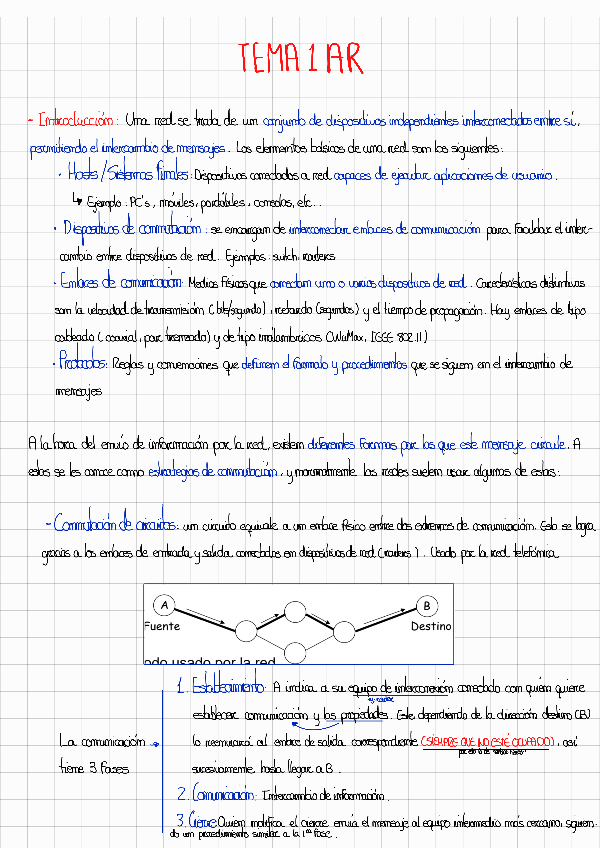 TEMA 1 AR
- Introducción: Una red se trata de un conjunto de dispositivos independientes interconectados entre sí,
permitiendo el intercambio de mensajes. Los elementos básicos de una red son los siguientes:
· Hosts/Sistemas finales: Dispositivos conectados a red capaces de ejecutar aplicaciones de usuario.
↳ Ejemplo: PC's, móviles, portátiles, consolas, etc...
· Dispositivos de conmutación: se encargan de interconectar enlaces de comunicación para facilitar el inter-
cambio entre dispositivos de red. Ejemplos: switch, routers
· Enlaces de comunicación: Medios físicos que conectan uno o varios dispositivos de red. Características distintivas
son la velocidad de transmisión (bits/segundo), retardo (segundos) y el tiempo de propagación. Hay enlaces de tipo
cableado (coaxial, par trenzado) y de tipo inalámbricos (WiMax, IEEE 802.11)
· Protocolos: Reglas y convenciones que definen el formato y procedimientos que se siguen en el intercambio de
mensajes
A la hora del envío de información por la red, existen diferentes formas por las que este mensaje circule. A
estas se les conoce como estrategias de conmutación, y normalmente las redes suelen usar algunas de estas:
- Conmutación de circuitos: un circuito equivale a un enlace físico entre dos extremos de comunicación. Esto se logra
gracias a los enlaces de entrada y salida conectados en dispositivos de red (routers). Usado por la red telefónica
A
B
Fuente
Destino
odo usado por la red
1. Establecimiento: A indica a su equipo de interconexión conectado con quién quiere
establecer comunicación y las propiedades. Este dependiendo de la dirección destino (B)
La comunicación → lo reenviará al enlace de salida correspondiente (SIEMPRE QUE NO ESTÉ OCUPADO), así
tiene 3 fases
sucesivamente hasta llegar a B.
2. Comunicación: Intercambio de información.
3. Cierre: Quien notifica el cierre envía el mensaje al equipo intermedio más cercano, siguien-
do un procedimiento similar a la 1ª fase.